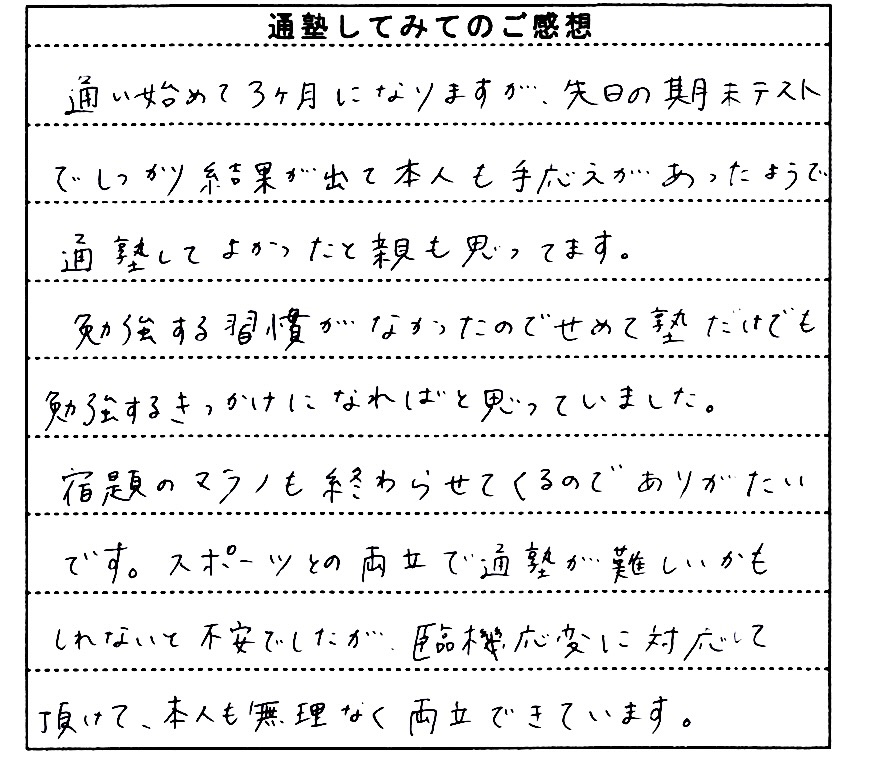 通塾してみてのご感想
通い始めて3ヶ月になりますが、先日の期末テスト
でしっかり結果が出て本人も手応えがあったようで
通塾してよかったと親も思ってます。
勉強する習慣がなかったのでせめて塾だけでも
勉強するきっかけになればと思っていました。
宿題のマラノも終わらせてくるのでありがたい
です。スポーツとの両立で通塾が難しいかも
しれないと不安でしたが、臨機応変に対応して
頂けて、本人も無理なく両立できています。